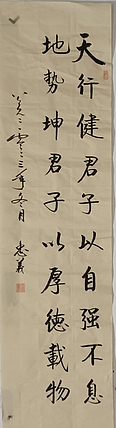 天行健君子以自强不息
地势坤君子以厚德載物
二零二三年冬月 忠義